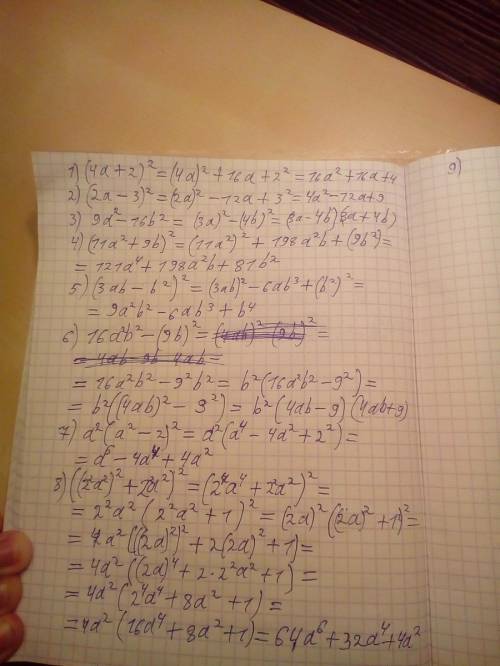 1) (4a+2)² = (4a)² + 16a + 2² = 16a² + 16a + 4
9)
2) (2a-3)² = (2a)² - 12a + 3² = 4a² - 12a + 9
3) 9a² - 16b² = (3a)² - (4b)² = (3a-4b)(3a+4b)
4) (11a² + 9b)² = (11a²)² + 198a²b + (9b²) =
= 121a⁴ + 198a²b + 81b²
5) (3ab - b²)² = (3ab)² - 6ab³ + (b²)² =
= 9a²b² - 6ab³ + b⁴
6) 16a²b² - (9b)² = (4ab)² - (9b)² =
= 4ab - 9b 4ab =
= 16a²b² - 9²b² = b²(16a²b² - 9²) =
= b²((4ab)² - 9²) = b²(4ab-9)(4ab+9)
7) a²(a²-2)² = a²(a⁴ - 4a² + 2²) =
= a⁶ - 4a⁴ + 4a²
8) ((2a²)² + 2a²)² = (2²a⁴ + 2a²)² =
= 2²a²(2²a² + 1)² = (2a)²((2a)² + 1)² =
= 4a²(((2a)²)² + 2(2a)² + 1) =
= 4a²((2a)⁴ + 2·2²a² + 1) =
= 4a²(2⁴a⁴ + 8a² + 1) =
= 4a²(16a⁴ + 8a² + 1) = 64a⁶ + 32a⁴ + 4a²